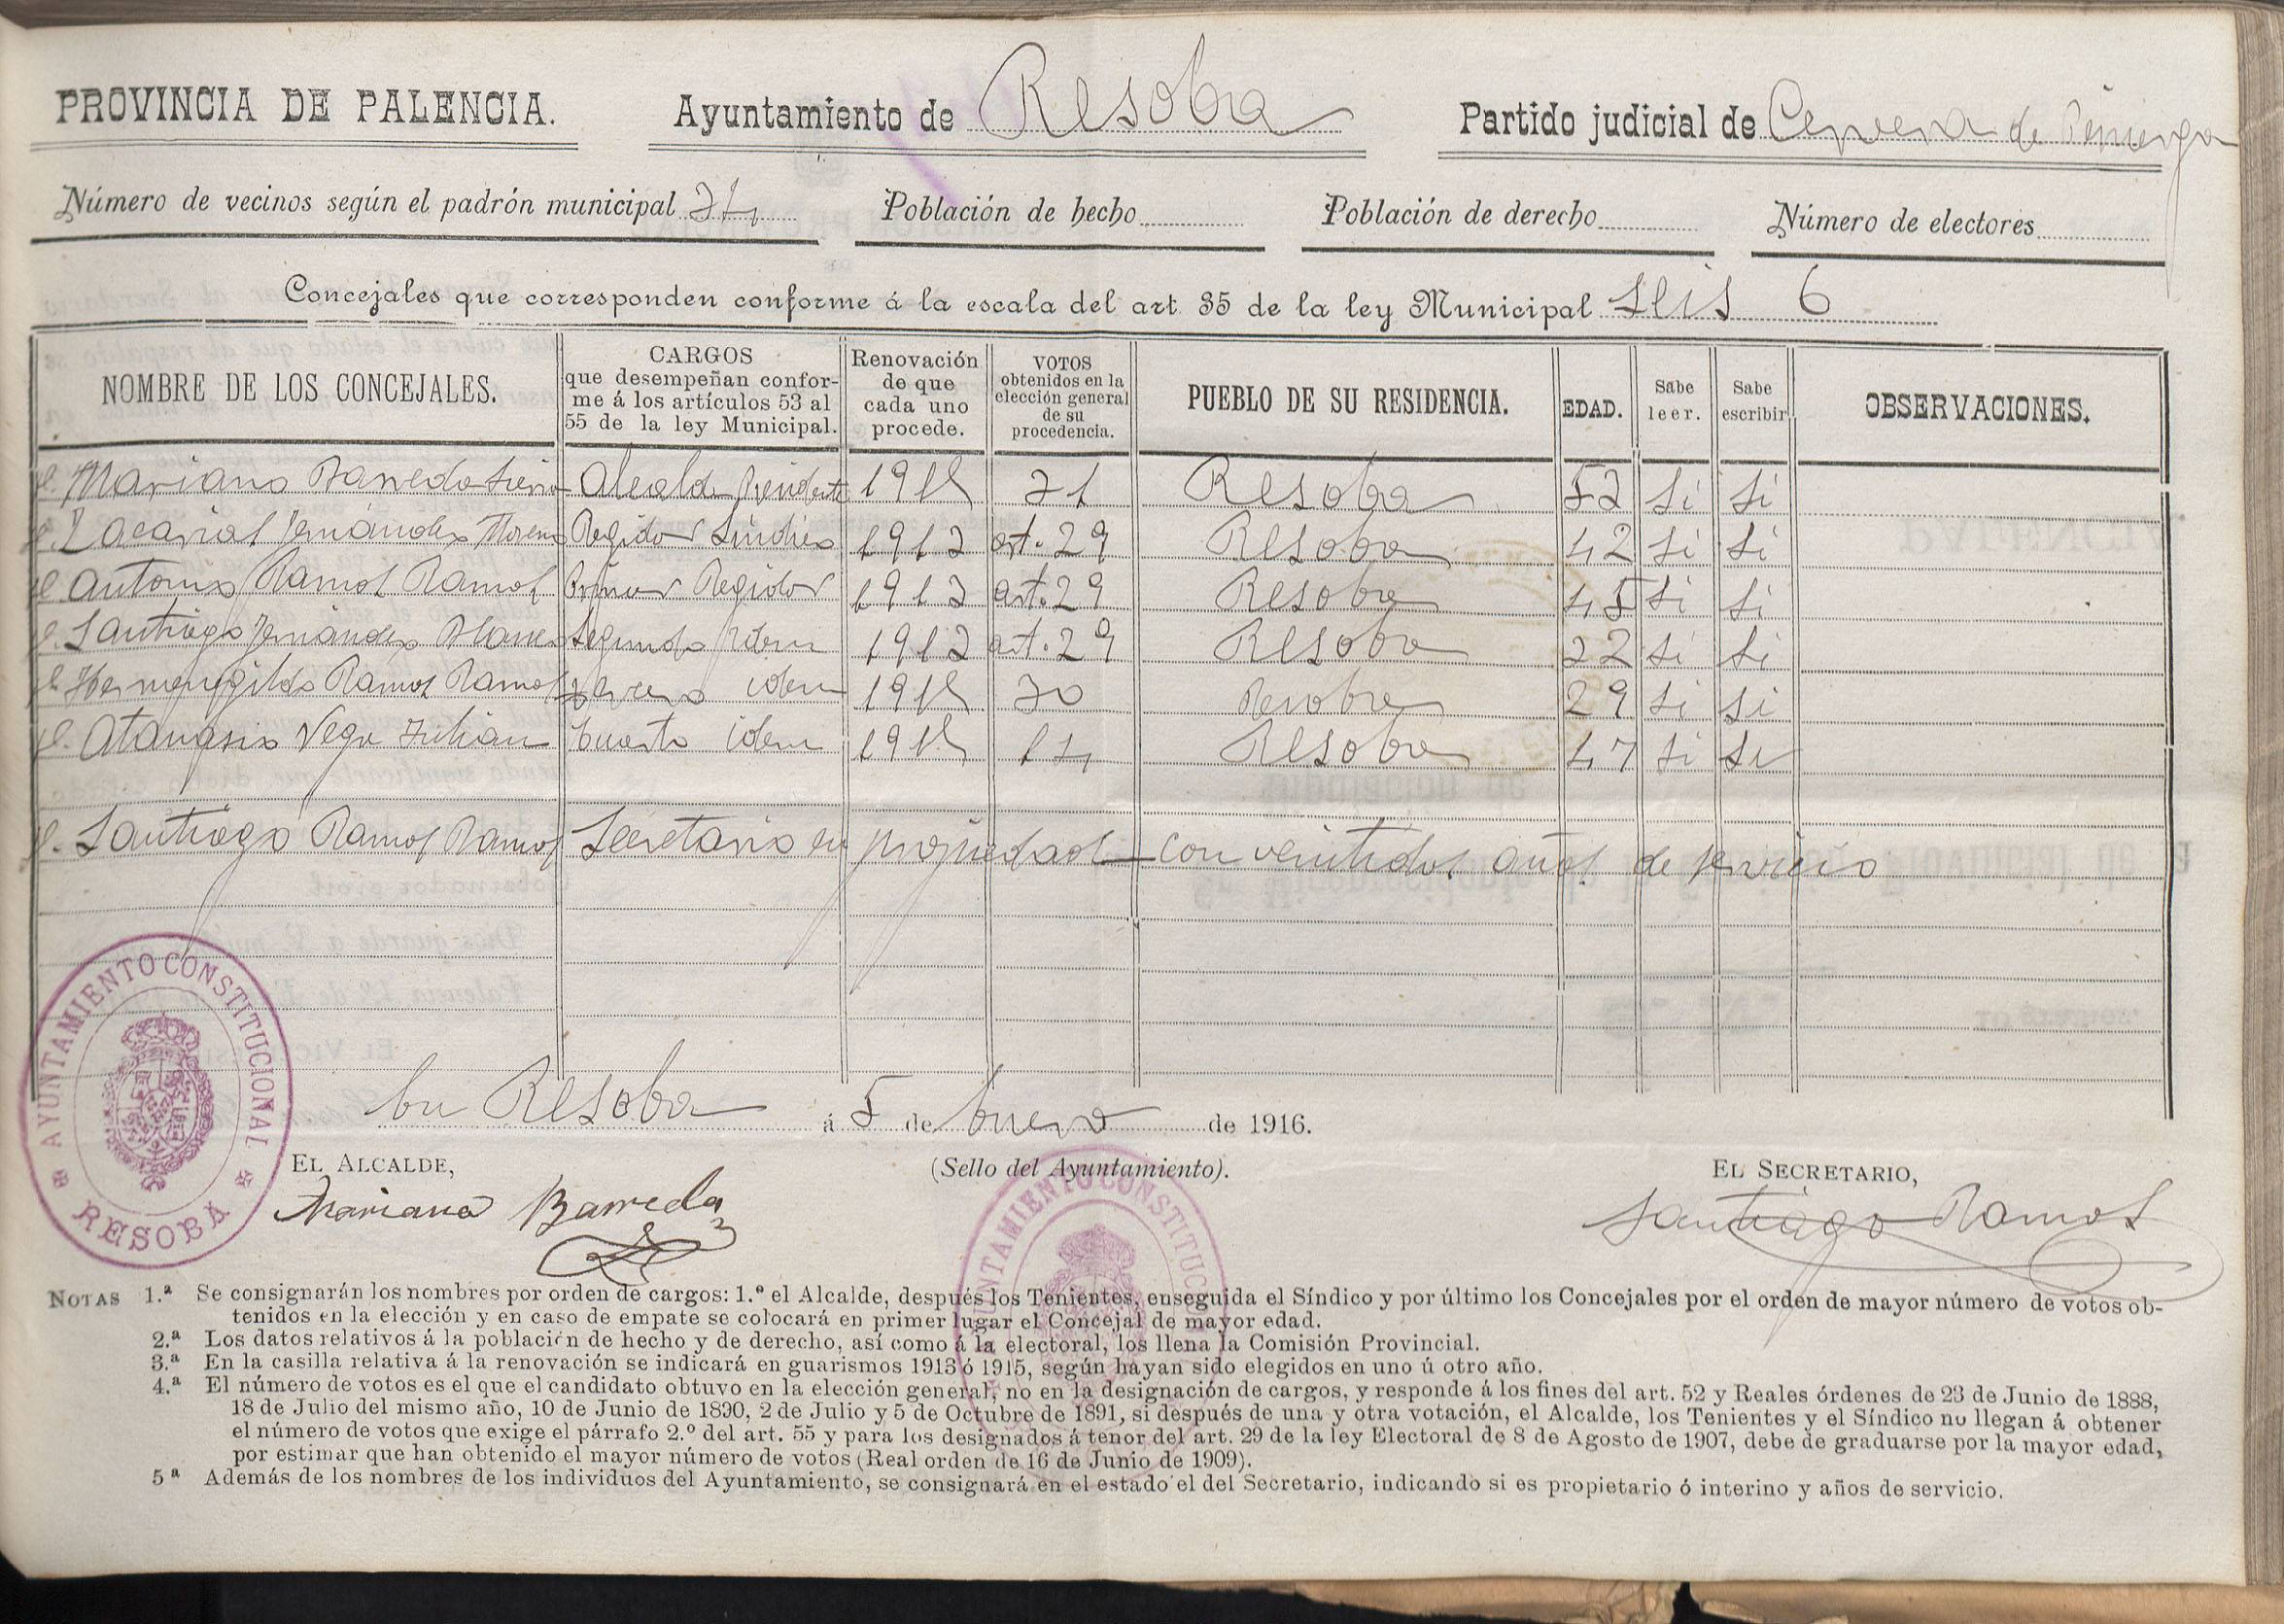 PROVINCIA DE PALENCIA. Ayuntamiento de Resoba Partido judicial de Cervera de Pisuerga
Número de vecinos según el padrón municipal 34 Población de hecho Población de derecho Número de electores
Concejales que corresponden conforme á la escala del art 35 de la ley Municipal seis 6
NOMBRE DE LOS CONCEJALES. CARGOS que desempeñan conforme á los artículos 53 al 55 de la ley Municipal. Renovación de que cada uno procede. VOTOS obtenidos en la elección general de su procedencia. PUEBLO DE SU RESIDENCIA. EDAD. Sabe leer. Sabe escribir OBSERVACIONES.
D. Mariano Barreda Alcalde Presidente 1915 31 Resoba 52 si si
D. Zacarias Fernández Moreno Regidor Sindico 1913 art. 29 Resoba 42 si si
D. Antonio Ramos Ramos Primer Regidor 1913 art. 29 Resoba 45 si si
D. Santiago Fernández Blanco Segundo Idem 1913 art. 29 Resoba 32 si si
D. Hermenegildo Ramos Ramos Tercero idem 1915 30 Resoba 29 si si
D. Atanasio Vega Julian Cuarto idem 1915 14 Resoba 47 si si
D. Santiago Ramos Ramos Secretario en propiedad con veintidos años de servicio
AYUNTAMIENTO CONSTITUCIONAL
RESOBA
En Resoba á 5 de Enero de 1916.
EL ALCALDE, (Sello del Ayuntamiento). EL SECRETARIO,
Mariano Barreda Santiago Ramos
AYUNTAMIENTO CONSTITUC
NOTAS 1.ª Se consignarán los nombres por orden de cargos: 1.º el Alcalde, después los Tenientes, enseguida el Síndico y por último los Concejales por el orden de mayor número de votos ob-
tenidos en la elección y en caso de empate se colocará en primer lugar el Concejal de mayor edad.
2.ª Los datos relativos á la población de hecho y de derecho, así como á la electoral, los llena la Comisión Provincial.
3.ª En la casilla relativa á la renovación se indicará en guarismos 1913 ó 1915, según hayan sido elegidos en uno ú otro año.
4.ª El número de votos es el que el candidato obtuvo en la elección general, no en la designación de cargos, y responde á los fines del art. 52 y Reales órdenes de 23 de Junio de 1888,
18 de Julio del mismo año, 10 de Junio de 1890, 2 de Julio y 5 de Octubre de 1891, si después de una y otra votación, el Alcalde, los Tenientes y el Síndico no llegan á obtener
el número de votos que exige el párrafo 2.º del art. 55 y para los designados á tenor del art. 29 de la ley Electoral de 8 de Agosto de 1907, debe de graduarse por la mayor edad,
por estimar que han obtenido el mayor número de votos (Real orden de 16 de Junio de 1909).
5ª Además de los nombres de los individuos del Ayuntamiento, se consignará en el estado el del Secretario, indicando si es propietario ó interino y años de servicio.